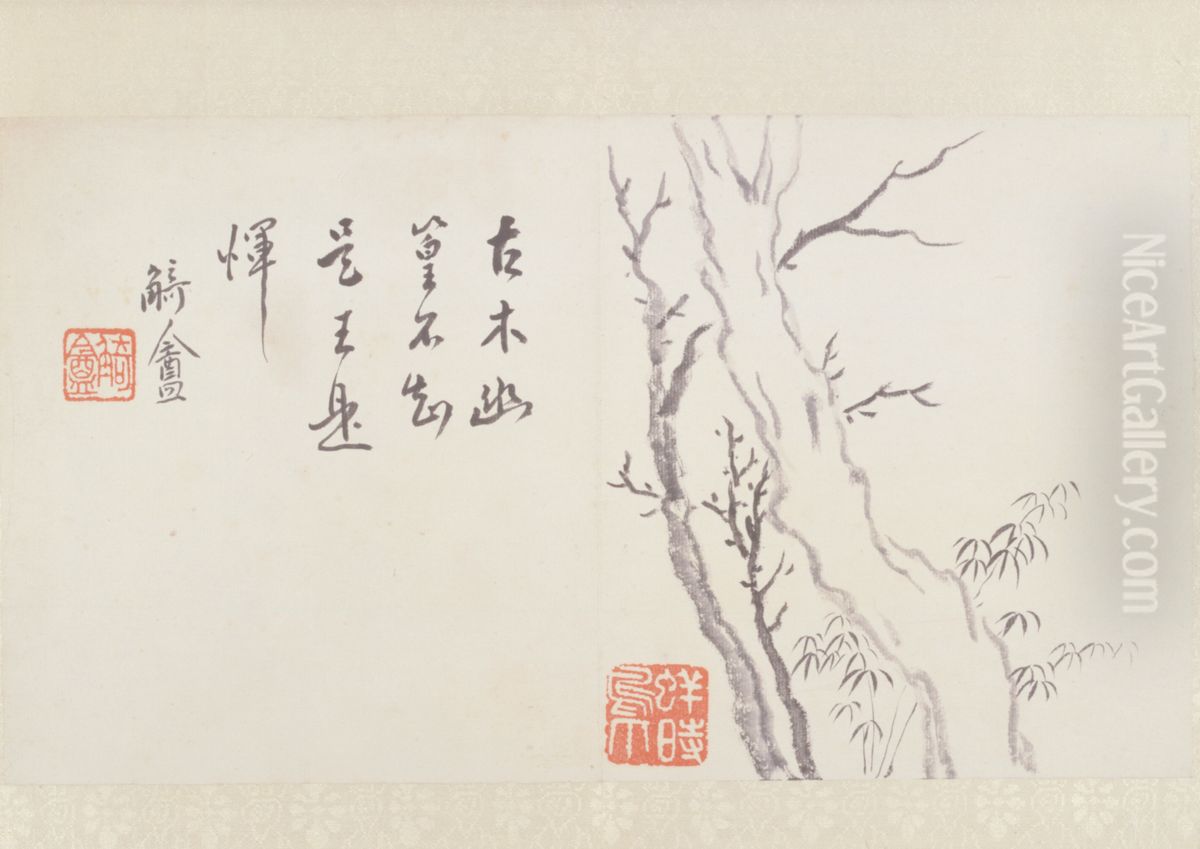 古木幽
篁不知
是王是
惲
觭盦
觭盦
NiceArtGallery.com